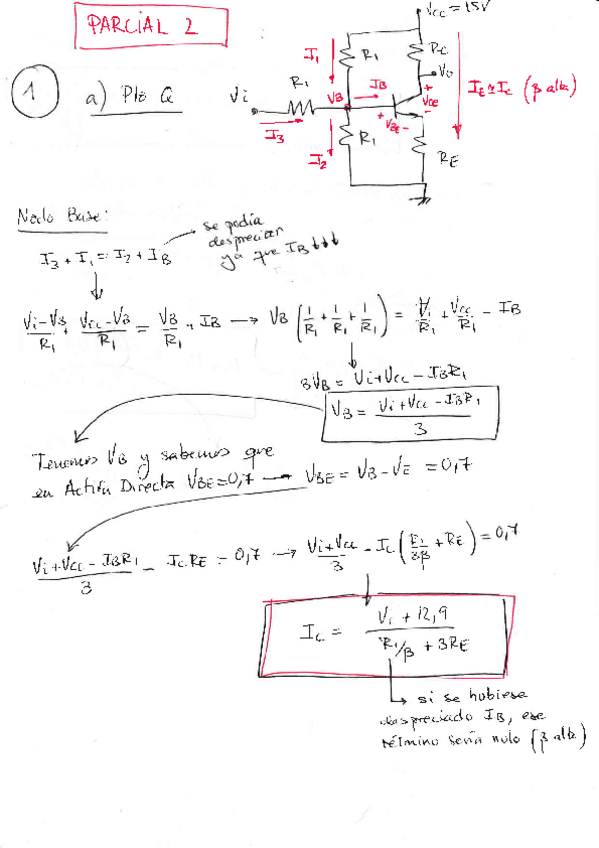 PARCIAL 2
Vcc = 15V
I1
R1
Rc
Vo
1
a) Pto Q
Vi
R1
VB
IB
+
VCE
-
IE ≃ Ic (β alta)
I3
I2
R1
+ VBE -
RE
Nodo Base:
I3 + I1 = I2 + IB
se podía
despreciar
ya que IB ↓↓↓
(Vi-VB)/R1 + (Vcc-VB)/R1 = VB/R1 + IB → VB (1/R1 + 1/R1 + 1/R1) = Vi/R1 + Vcc/R1 - IB
3VB = Vi+Vcc - IBR1
VB = (Vi+Vcc - IBR1)/3
Tenemos VB y sabemos que
en Activa Directa VBE=0,7 → VBE = VB-VE = 0,7
(Vi+Vcc - IBR1)/3 - Ic.RE = 0,7 → (Vi+Vcc)/3 - Ic (R1/3β + RE) = 0,7
Ic = (Vi + 12,9)/(R1/β + 3RE)
si se hubiese
despreciado IB, ese
término sería nulo (β alta)